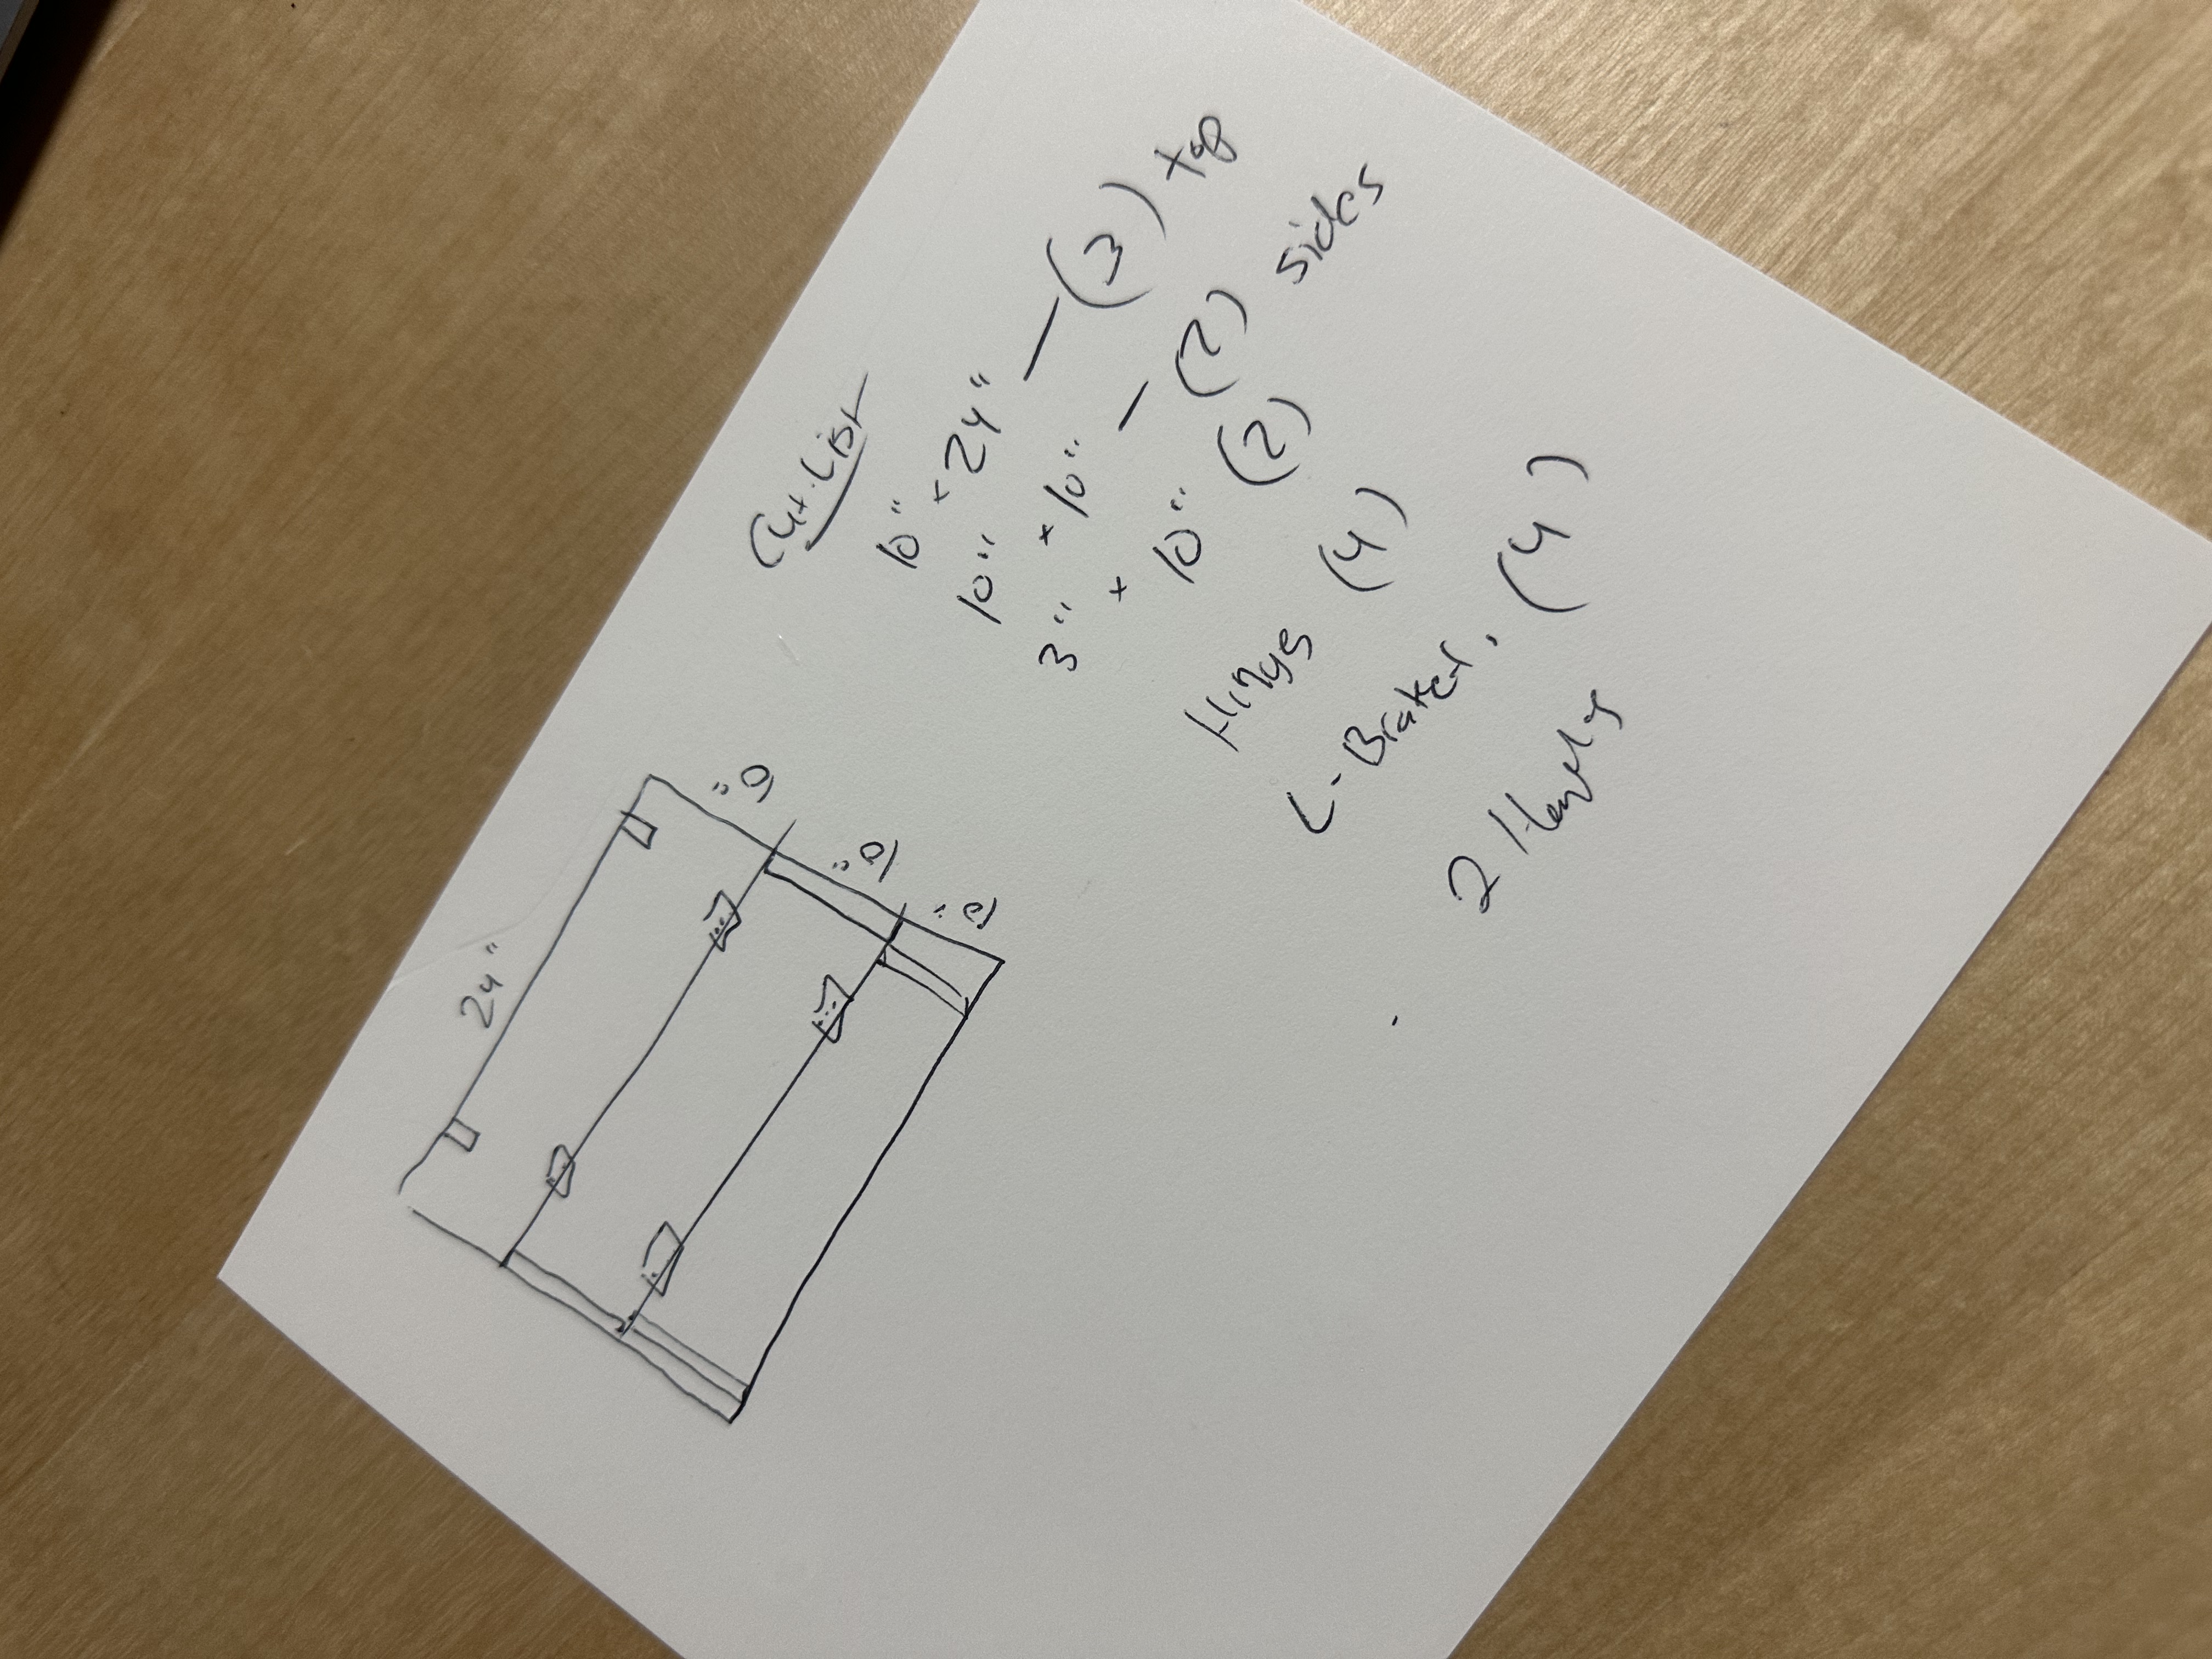 Cut List
10" x 24" — (3) top
10" x 10" — (2) sides
3" x 10" (2)
Hinges (4)
L-Braket. (4)
2
24"
10"
10"
10"